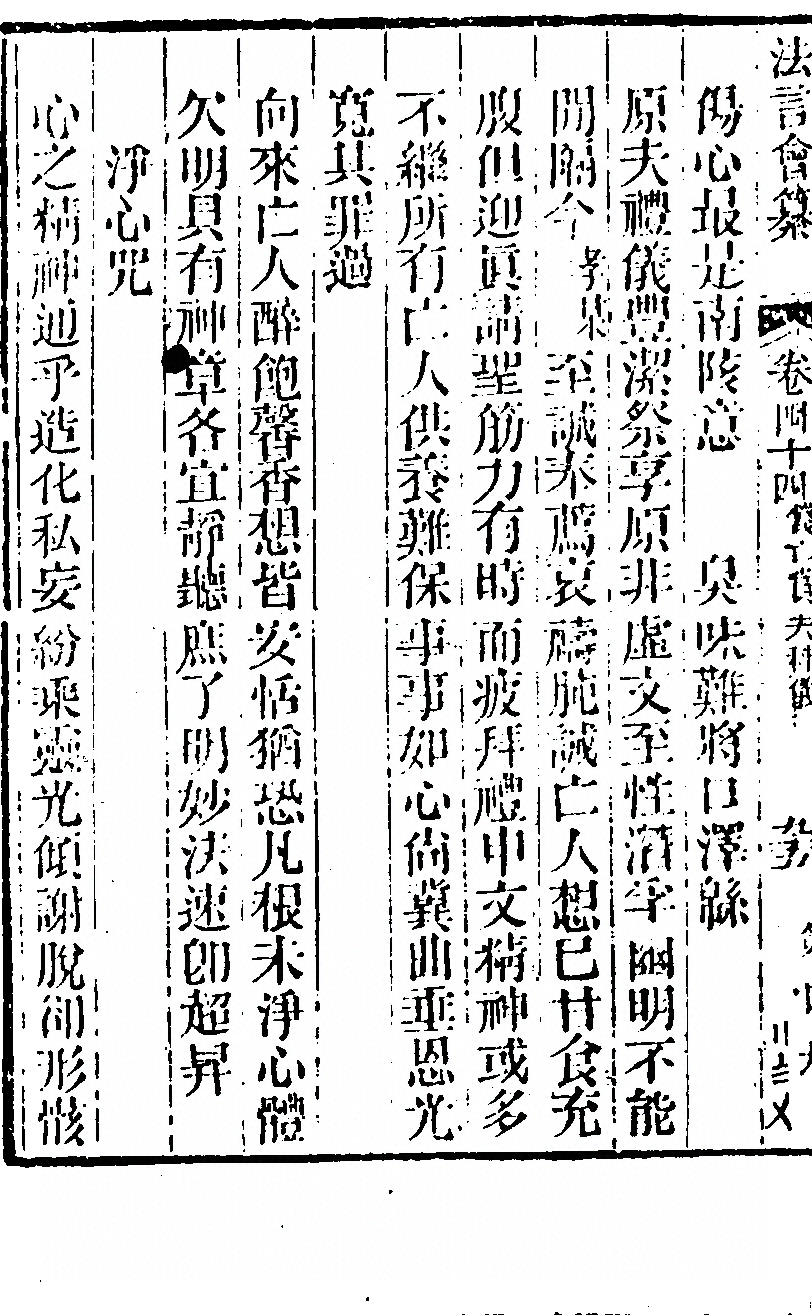 法言會纂 卷四十四
傷心最是南陔意 臭味難將口澤緜
原夫禮儀豐潔祭享原非虛文至性潛孚幽明不能
間隔今孝某至誠奉薦哀禱施誠亡人想已甘食充
腹但迎眞請聖筋力有時而疲拜禮申文精神或多
不繼所有亡人供養難保事事如心尚冀曲垂恩光
寬其罪過
向來亡人醉飽馨香想皆安恬猶恐凡根未淨心體
欠明具有神章各宜靜聽庶了明妙決速卽超昇
淨心咒
心之精神通乎造化私妄紛乘靈光傾謝脫卻形骸